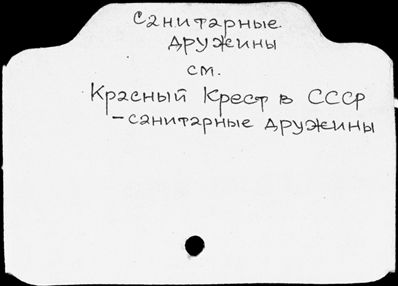 Санитарные
дружины
см.
Красный Крест в СССР
-санитарные дружины